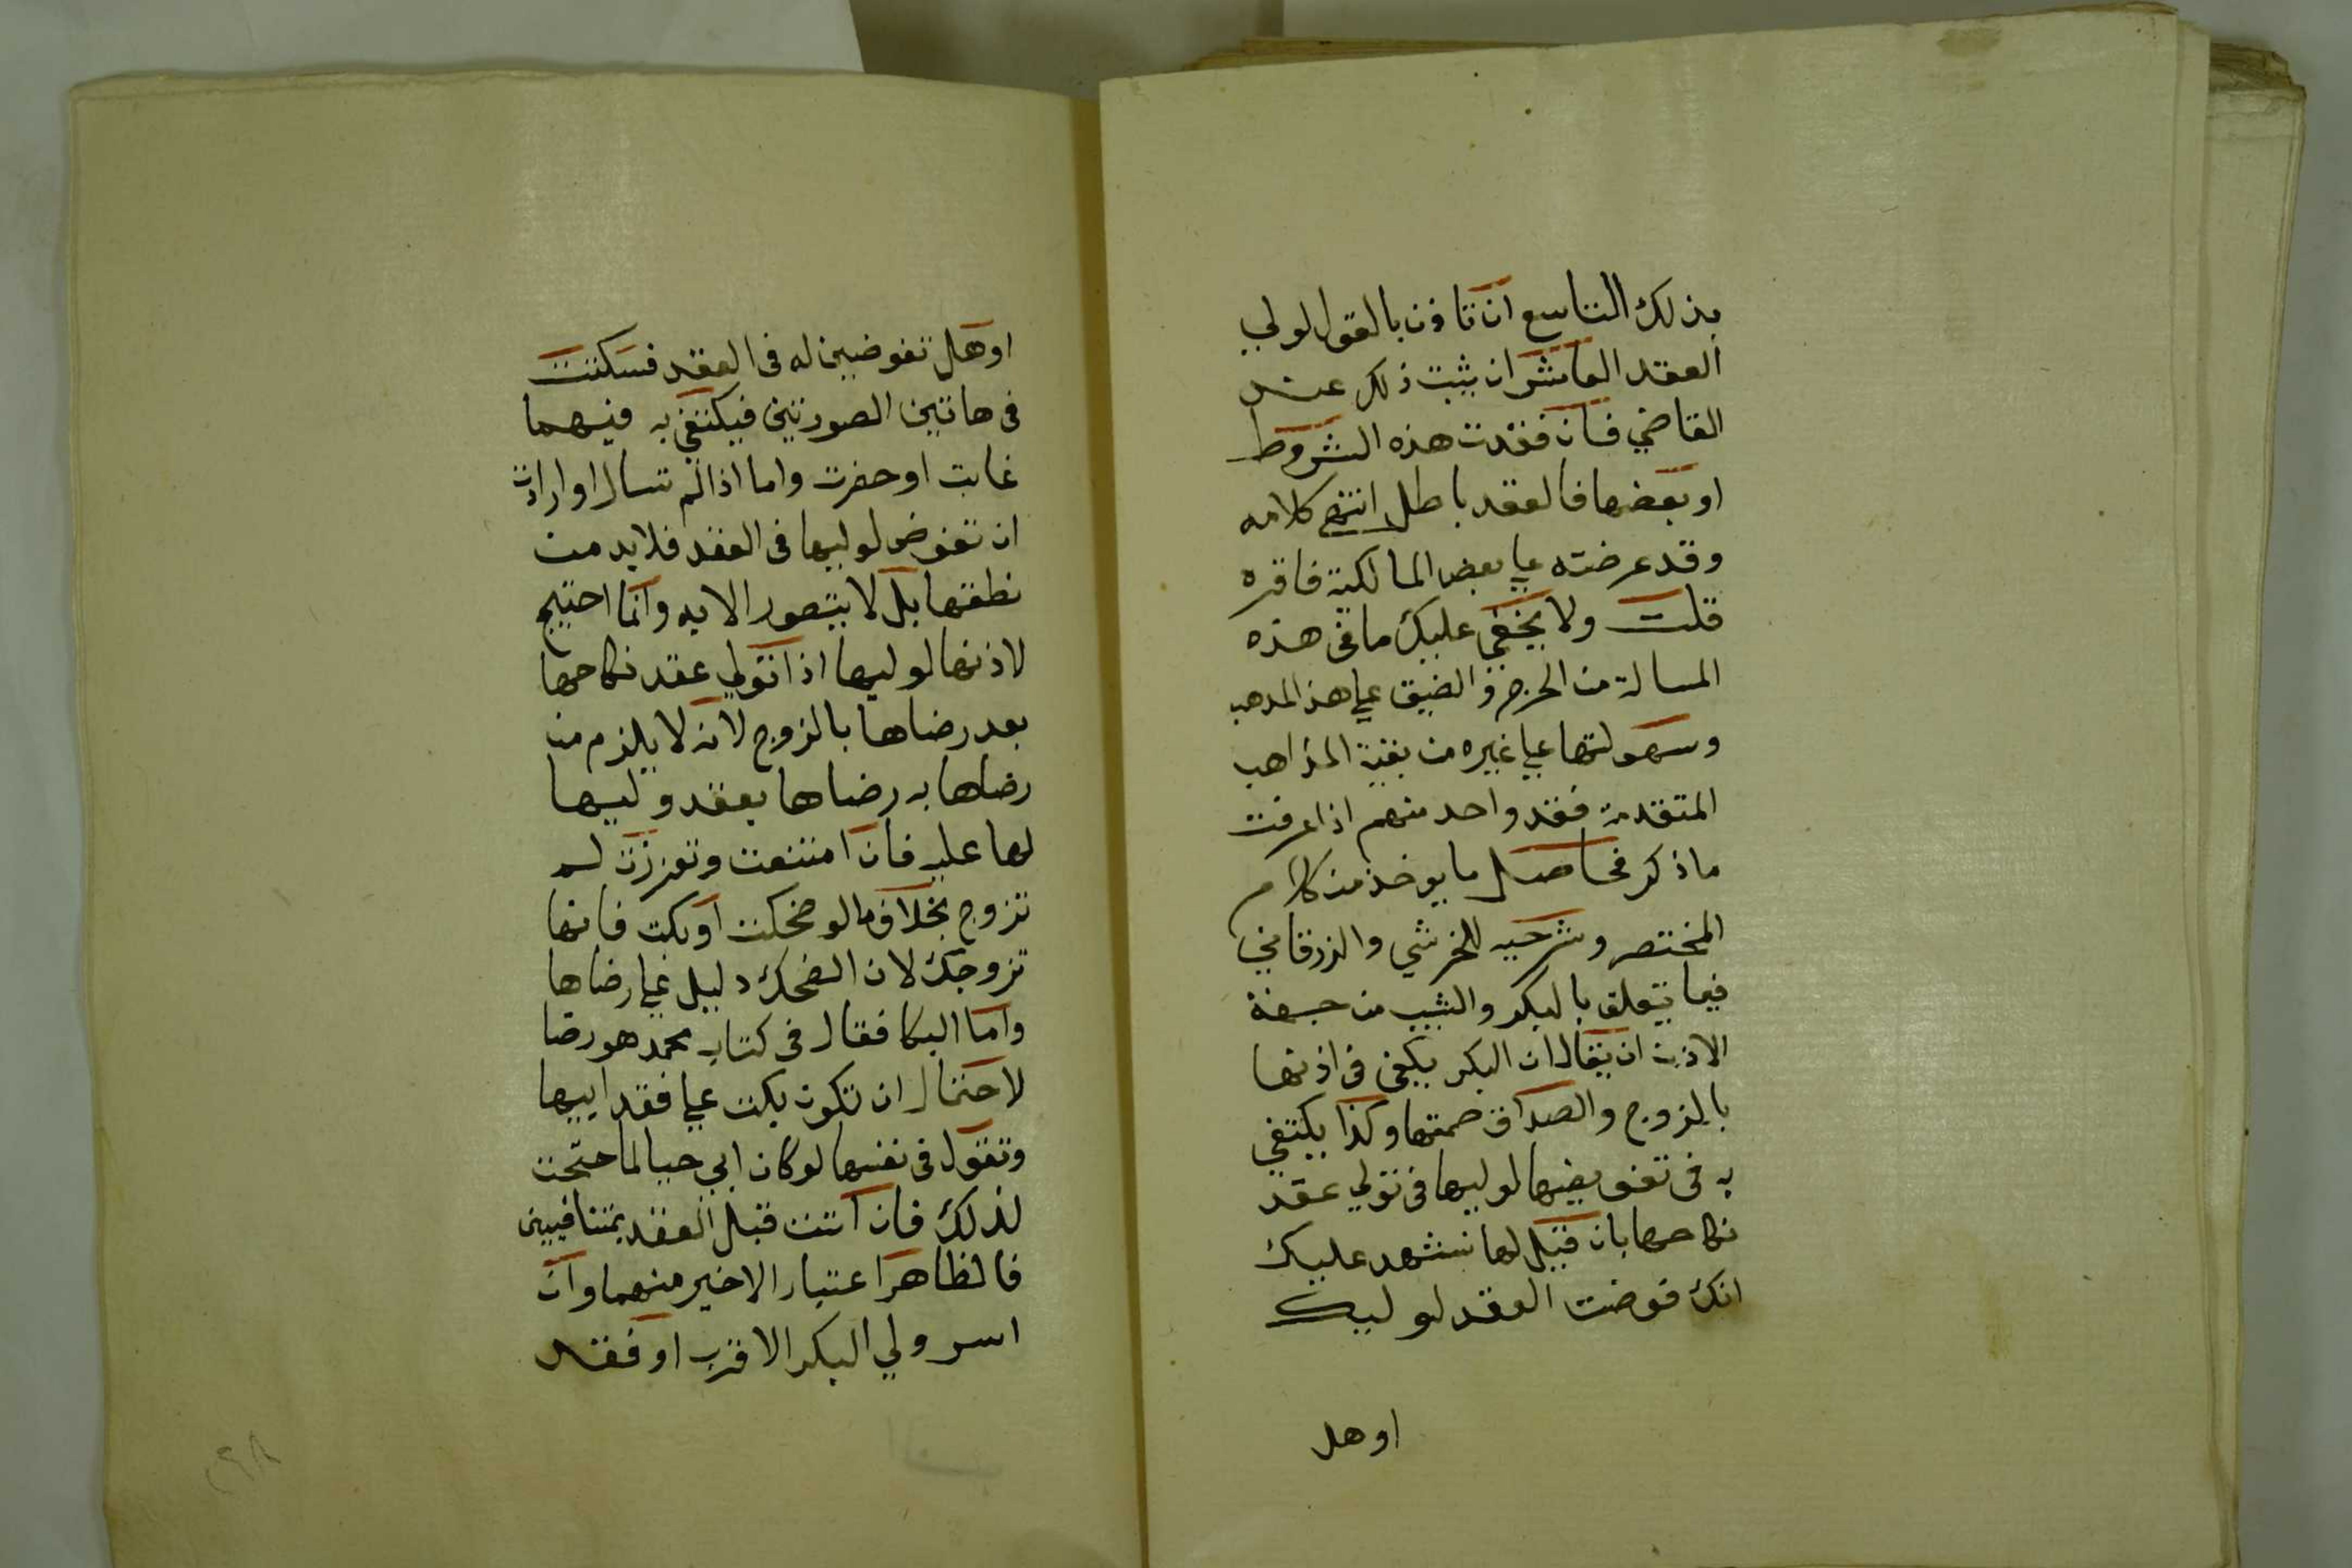 بذلك التاسع ان تاذن بالقول لولي
العقد العاشر ان يثبت ذلك عند
القاضي فان فقدت هذه الشروط
او بعضها فالعقد باطل انتهى كلامه
وقد عرضته علي بعض المالكية فاقره
قلت ولا يخفي عليك ما في هذه
المسالة من الحرج والضيق علي هذا المذهب
وسهولتها علي غيره من بقية المذاهب
المتقدمة فقد واحد منهم اذا عرفت
ما ذكر فحاصل ما يوخذ من كلام
المختصر وشرحيه للخرشي والزرقاني
فيما يتعلق بالبكر والثيب من جهة
الاذن ان يقال ان البكر يكفي في اذنها
بالزوج والصداق صمتها وكذا يكتفي
به في تفويضها لوليها في تولي عقد
نكاحها بان قيل لها نشهد عليك
انك فوضت العقد لوليك
اوهل
اوهل تفوضين له في العقد فسكتت
في هاتين الصورتين فيكتفي به فيهما
غابت او حضرت واما اذا لم تسال او ارادت
ان تفوض لوليها في العقد فلا بد من
نطقها بل لا يتصور الا به وانما احتيج
لاذنها لوليها اذا تولي عقد نكاحها
بعد رضاها بالزوج لانه لا يلزم من
رضاها به رضاها بعقد وليها
لها عليه فان امتنعت وتعززت لم
تزوج بخلاف ما لو ضحكت او بكت فانها
تزوج لان الضحك دليل علي رضاها
واما البكا فقال في كتاب محمد هو رضا
لاحتمال ان تكون بكت علي فقد ابيها
وتقول في نفسها لو كان ابي حيا لما احتجت
لذلك فان اتت قبل العقد بمتنافيين
فالظاهر اعتبار الاخير منهما وان
اسر ولي البكر الاقرب او فقد